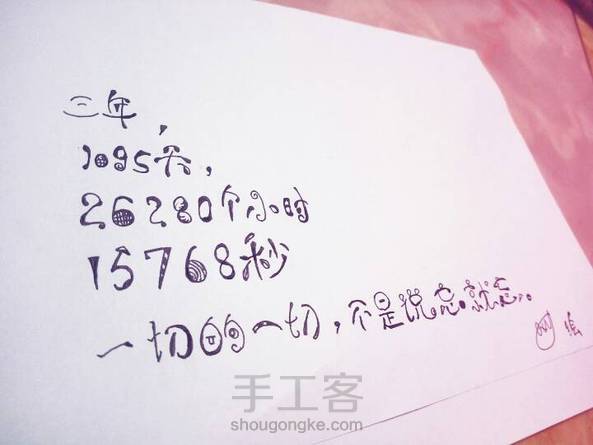 三年，
1095天，
26280个小时
15768秒
一切的一切，不是说忘就忘。
手工客
shougongke.com